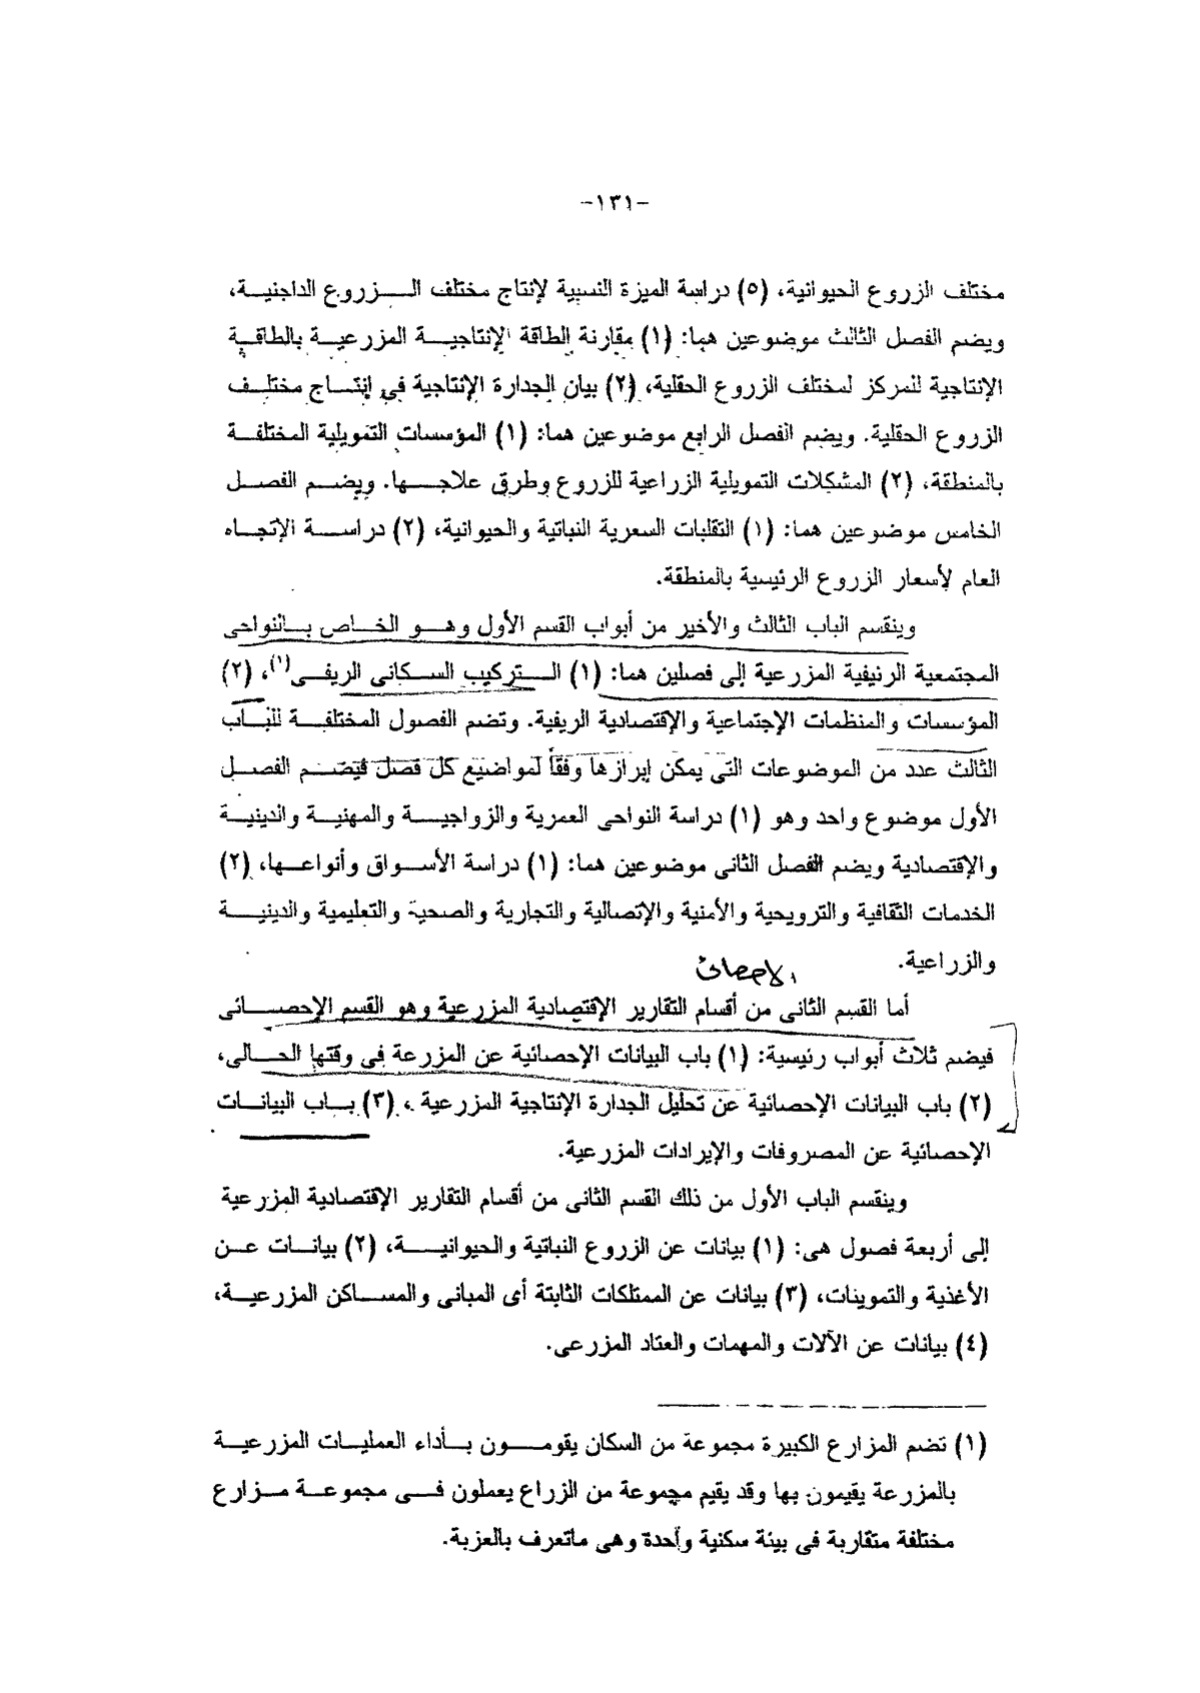 -١٣١-
مختلف الزروع الحيوانية، (٥) دراسة الميزة النسبية لإنتاج مختلف الـــزروع الداجنيـة،
ويضم الفصل الثالث موضوعين هما: (١) مقارنة الطاقة الإنتاجيــة المزرعيــة بالطاقـة
الإنتاجية للمركز لمختلف الزروع الحقلية، (٢) بيان الجدارة الإنتاجية في إنتــاج مختلـف
الزروع الحقلية. ويضم الفصل الرابع موضوعين هما: (١) المؤسسات التمويلية المختلفــة
بالمنطقة، (٢) المشكلات التمويلية الزراعية للزروع وطرق علاجــها. ويضــم الفصــل
الخامس موضوعين هما: (١) التقلبات السعرية النباتية والحيوانية، (٢) دراســة الإتجــاه
العام لأسعار الزروع الرئيسية بالمنطقة.
وينقسم الباب الثالث والأخير من أبواب القسم الأول وهــو الخــاص بــالنواحى
المجتمعية الرئيفية المزرعية إلى فصلين هما: (١) الــتركيب الســكانى الريفــى(١)، (٢)
المؤسسات والمنظمات الإجتماعية والإقتصادية الريفية. وتضم الفصول المختلفــة للبــاب
الثالث عدد من الموضوعات التى يمكن إبرازها وفقاً لمواضيع كل فصل فيضــم الفصــل
الأول موضوع واحد وهو (١) دراسة النواحى العمرية والزواجيــة والمهنيــة والدينيــة
والإقتصادية ويضم الفصل الثانى موضوعين هما: (١) دراسة الأســواق وأنواعــها، (٢)
الخدمات الثقافية والترويحية والأمنية والإتصالية والتجارية والصحية والتعليمية والدينيــة
والزراعية.
الاحصائى
أما القسم الثانى من أقسام التقارير الإقتصادية المزرعية وهو القسم الإحصــائى
فيضم ثلاث أبواب رئيسية: (١) باب البيانات الإحصائية عن المزرعة فى وقتها الحــالى،
(٢) باب البيانات الإحصائية عن تحليل الجدارة الإنتاجية المزرعية ، (٣) بــاب البيانــات
الإحصائية عن المصروفات والإيرادات المزرعية.
وينقسم الباب الأول من ذلك القسم الثانى من أقسام التقارير الإقتصادية المزرعية
إلى أربعة فصول هى: (١) بيانات عن الزروع النباتية والحيوانيــة، (٢) بيانــات عــن
الأغذية والتموينات، (٣) بيانات عن الممتلكات الثابتة أى المبانى والمســاكن المزرعيــة،
(٤) بيانات عن الآلات والمهمات والعتاد المزرعى.
(١) تضم المزارع الكبيرة مجموعة من السكان يقومــون بــأداء العمليــات المزرعيــة
بالمزرعة يقيمون بها وقد يقيم مجموعة من الزراع يعملون فــى مجموعــة مــزارع
مختلفة متقاربة فى بيئة سكنية واحدة وهى ماتعرف بالعزبة.